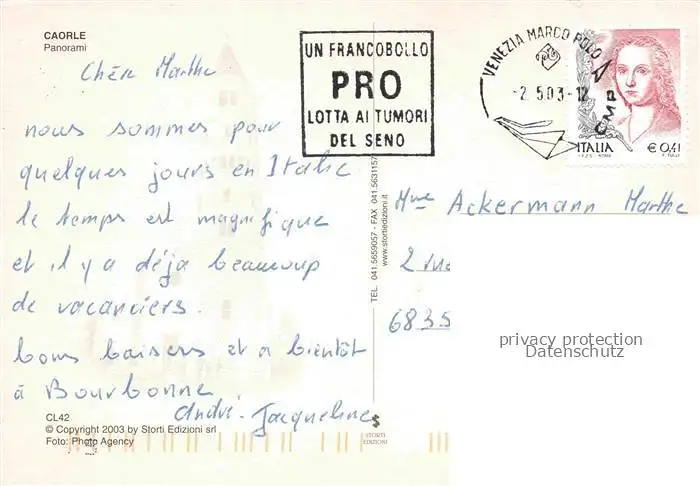 CAORLE
Panorami
Chère Marthe
nous sommes pour
quelques jours en Italie
le temps est magnifique
et il y a déja beaucoup
de vacanciers.
bons baisers et a bientôt
à Bourbonne
André. Jacqueline
CL42
© Copyright 2003 by Storti Edizioni srl
Foto: Photo Agency
UN FRANCOBOLLO
PRO
LOTTA AI TUMORI
DEL SENO
VENEZIA MARCO POLO
CMP
-2.5.03-12
ITALIA
€ 0,41
I.P.Z.S. ROMA
TEL. 041.5659057 - FAX 041.5631157
www.stortiedizioni.it
Mme Ackermann Marthe
2 rue
6835
privacy protection
Datenschutz
STORTI
EDIZIONI